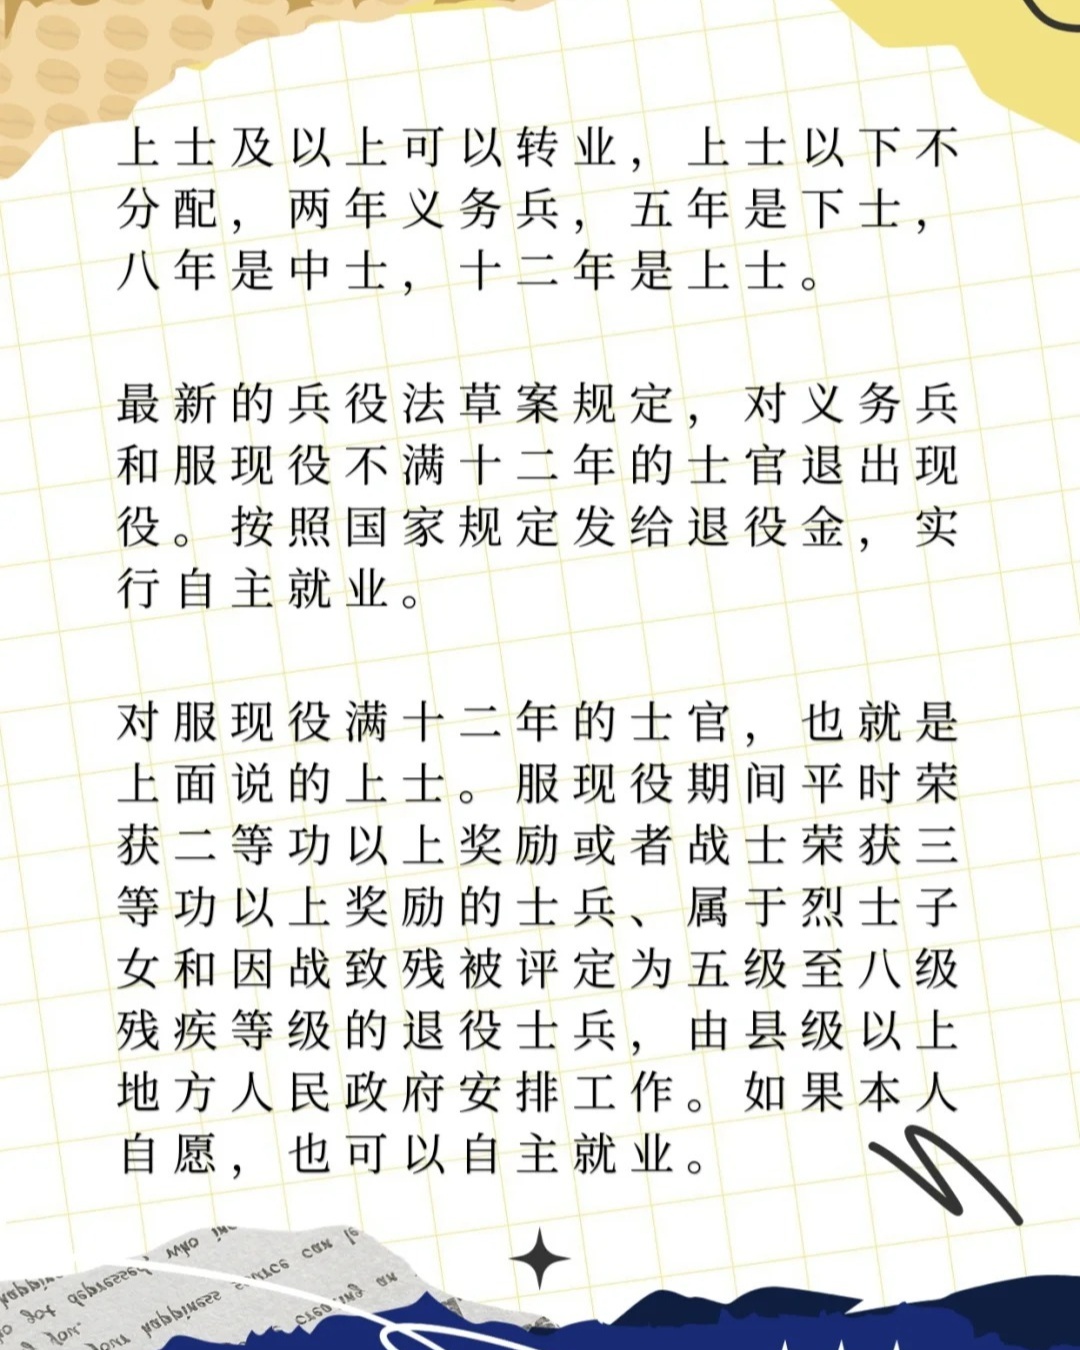 上士及以上可以转业，上士以下不
分配，两年义务兵，五年是下士，
八年是中士，十二年是上士。
最新的兵役法草案规定，对义务兵
和服现役不满十二年的士官退出现
役。按照国家规定发给退役金，实
行自主就业。
对服现役满十二年的士官，也就是
上面说的上士。服现役期间平时荣
获二等功以上奖励或者战士荣获三
等功以上奖励的士兵、属于烈士子
女和因战致残被评定为五级至八级
残疾等级的退役士兵，由县级以上
地方人民政府安排工作。如果本人
自愿，也可以自主就业。
who
got depressed
you.
your happiness source can
creating an